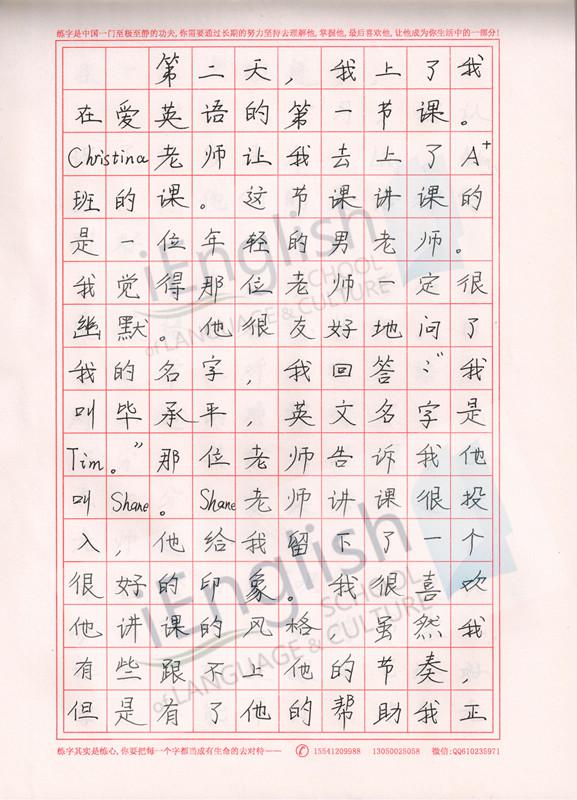 练字是中国一门至极至静的功夫,你需要通过长期的努力坚持去理解他,掌握他,最后喜欢他,让他成为你生活中的一部分!
第二天，我上了我
在爱英语的第一节课。
Christina老师让我去上了A+
班的课。这节课讲课的
是一位年轻的男老师。
我觉得那位老师一定很
幽默。他很友好地问了
我的名字，我回答：“我
叫毕承平，英文名字是
Tim。”那位老师告诉我他
叫Shane。Shane老师讲课很投
入，他给我留下了一个
很好的印象。我很喜欢
他讲课的风格，虽然我
有些跟不上他的节奏，
但是有了他的帮助我正
iEnglish
SCHOOL
of LANGUAGE & CULTURE
iEnglish
SCHOOL
of LANGUAGE & CULTURE
练字其实是练心,你要把每一个字都当成有生命的去对待—— 15541209988 13050025058 微信:QQ610235971